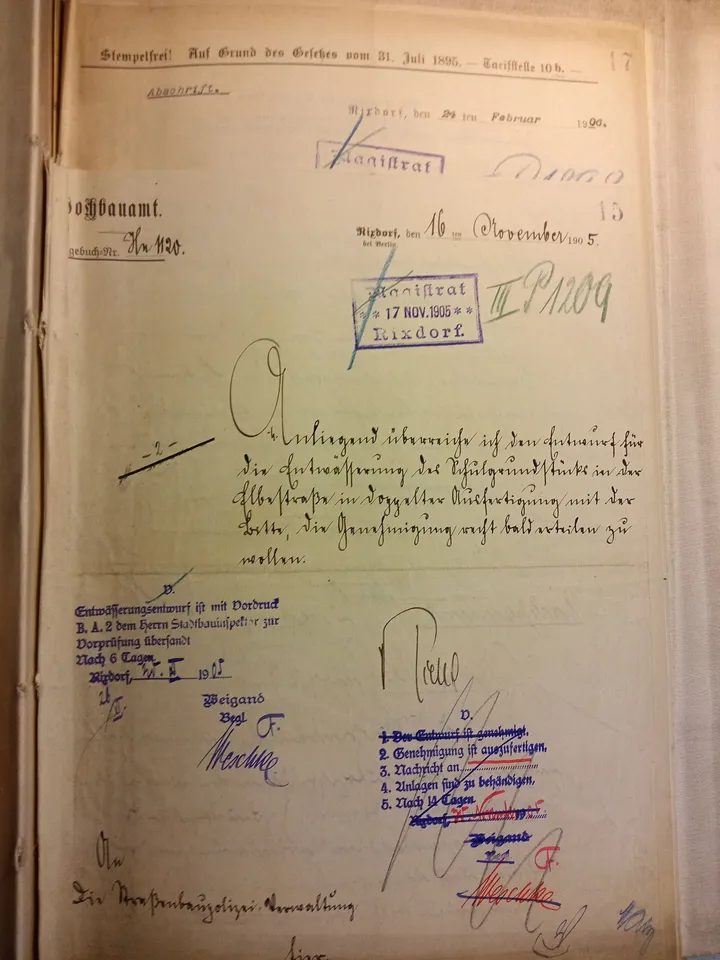 Stempelfrei! Auf Grund des Gesetzes vom 31. Juli 1895. — Tarifstelle 10 h. —
17
Abschrift.
Rixdorf, den 24 ten Februar 1906.
Magistrat
ochbauamt.
15
gebuch-Nr. 1120.
Rixdorf, den 16 ten November 1905.
bei Berlin
Magistrat
* * 17 NOV. 1905 * *
Rixdorf.
III P 1209
- 2 -
Anliegend überreiche ich den Entwurf für
die Entwässerung des Schulgrundstücks in der
Elbestraße in doppelter Ausfertigung mit der
Bitte, die Genehmigung recht bald erteilen zu
wollen.
V.
Entwässerungsentwurf ist mit Vordruck
B. A. 2 dem Herrn Stadtbauinspektor zur
Vorprüfung übersandt
Nach 6 Tagen
Rixdorf, 1905
Weigand
Begl F.
Meschke
V.
1. Der Entwurf ist genehmigt.
2. Genehmigung ist auszufertigen.
3. Nachricht an
4. Anlagen sind zu behändigen.
5. Nach 14 Tagen
Rixdorf,
Weigand
F.
Meschke
An
Die Straßenbaupolizei-Verwaltung
hier